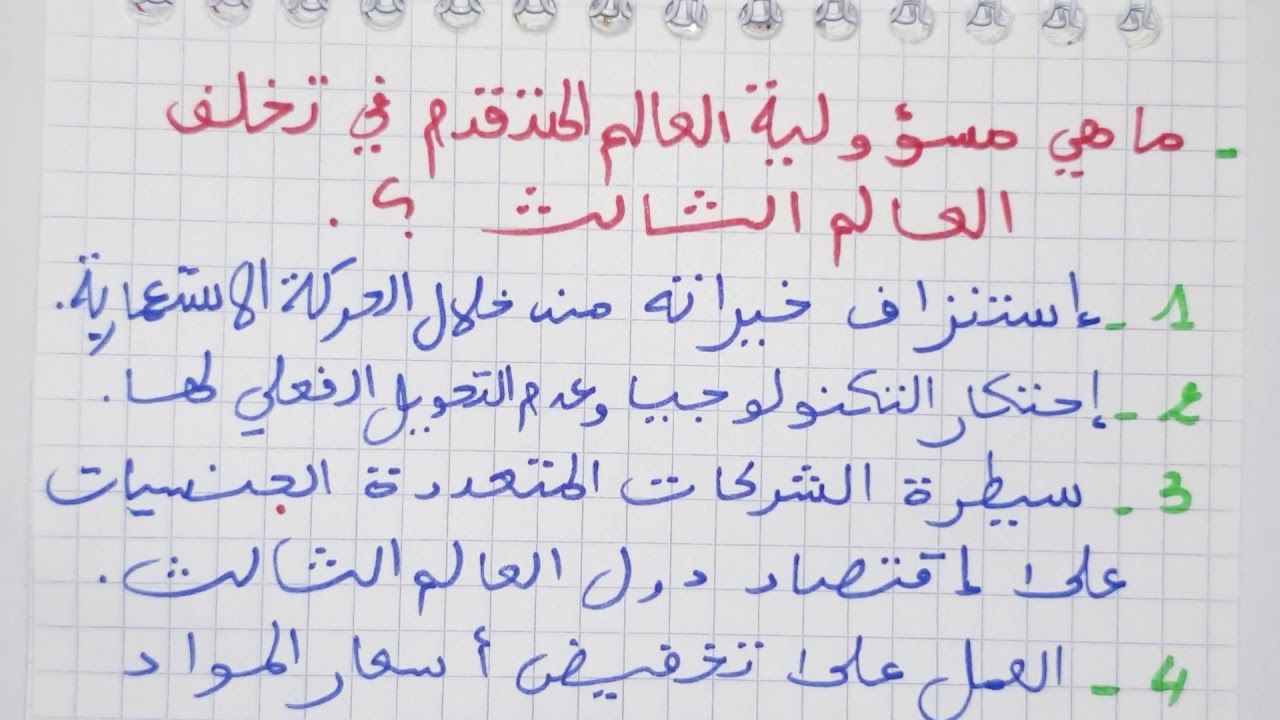 - ما هي مسؤولية العالم المتقدم في تخلف
العالم الثالث ؟ .
1 - إستنزاف خيراته من خلال الحركة الاستعمارية .
2 - إحتكار التكنولوجيا وعدم التحويل الفعلي لها .
3 - سيطرة الشركات المتعددة الجنسيات
على اقتصاد دول العالم الثالث .
4 - العمل على تخفيض أسعار المواد